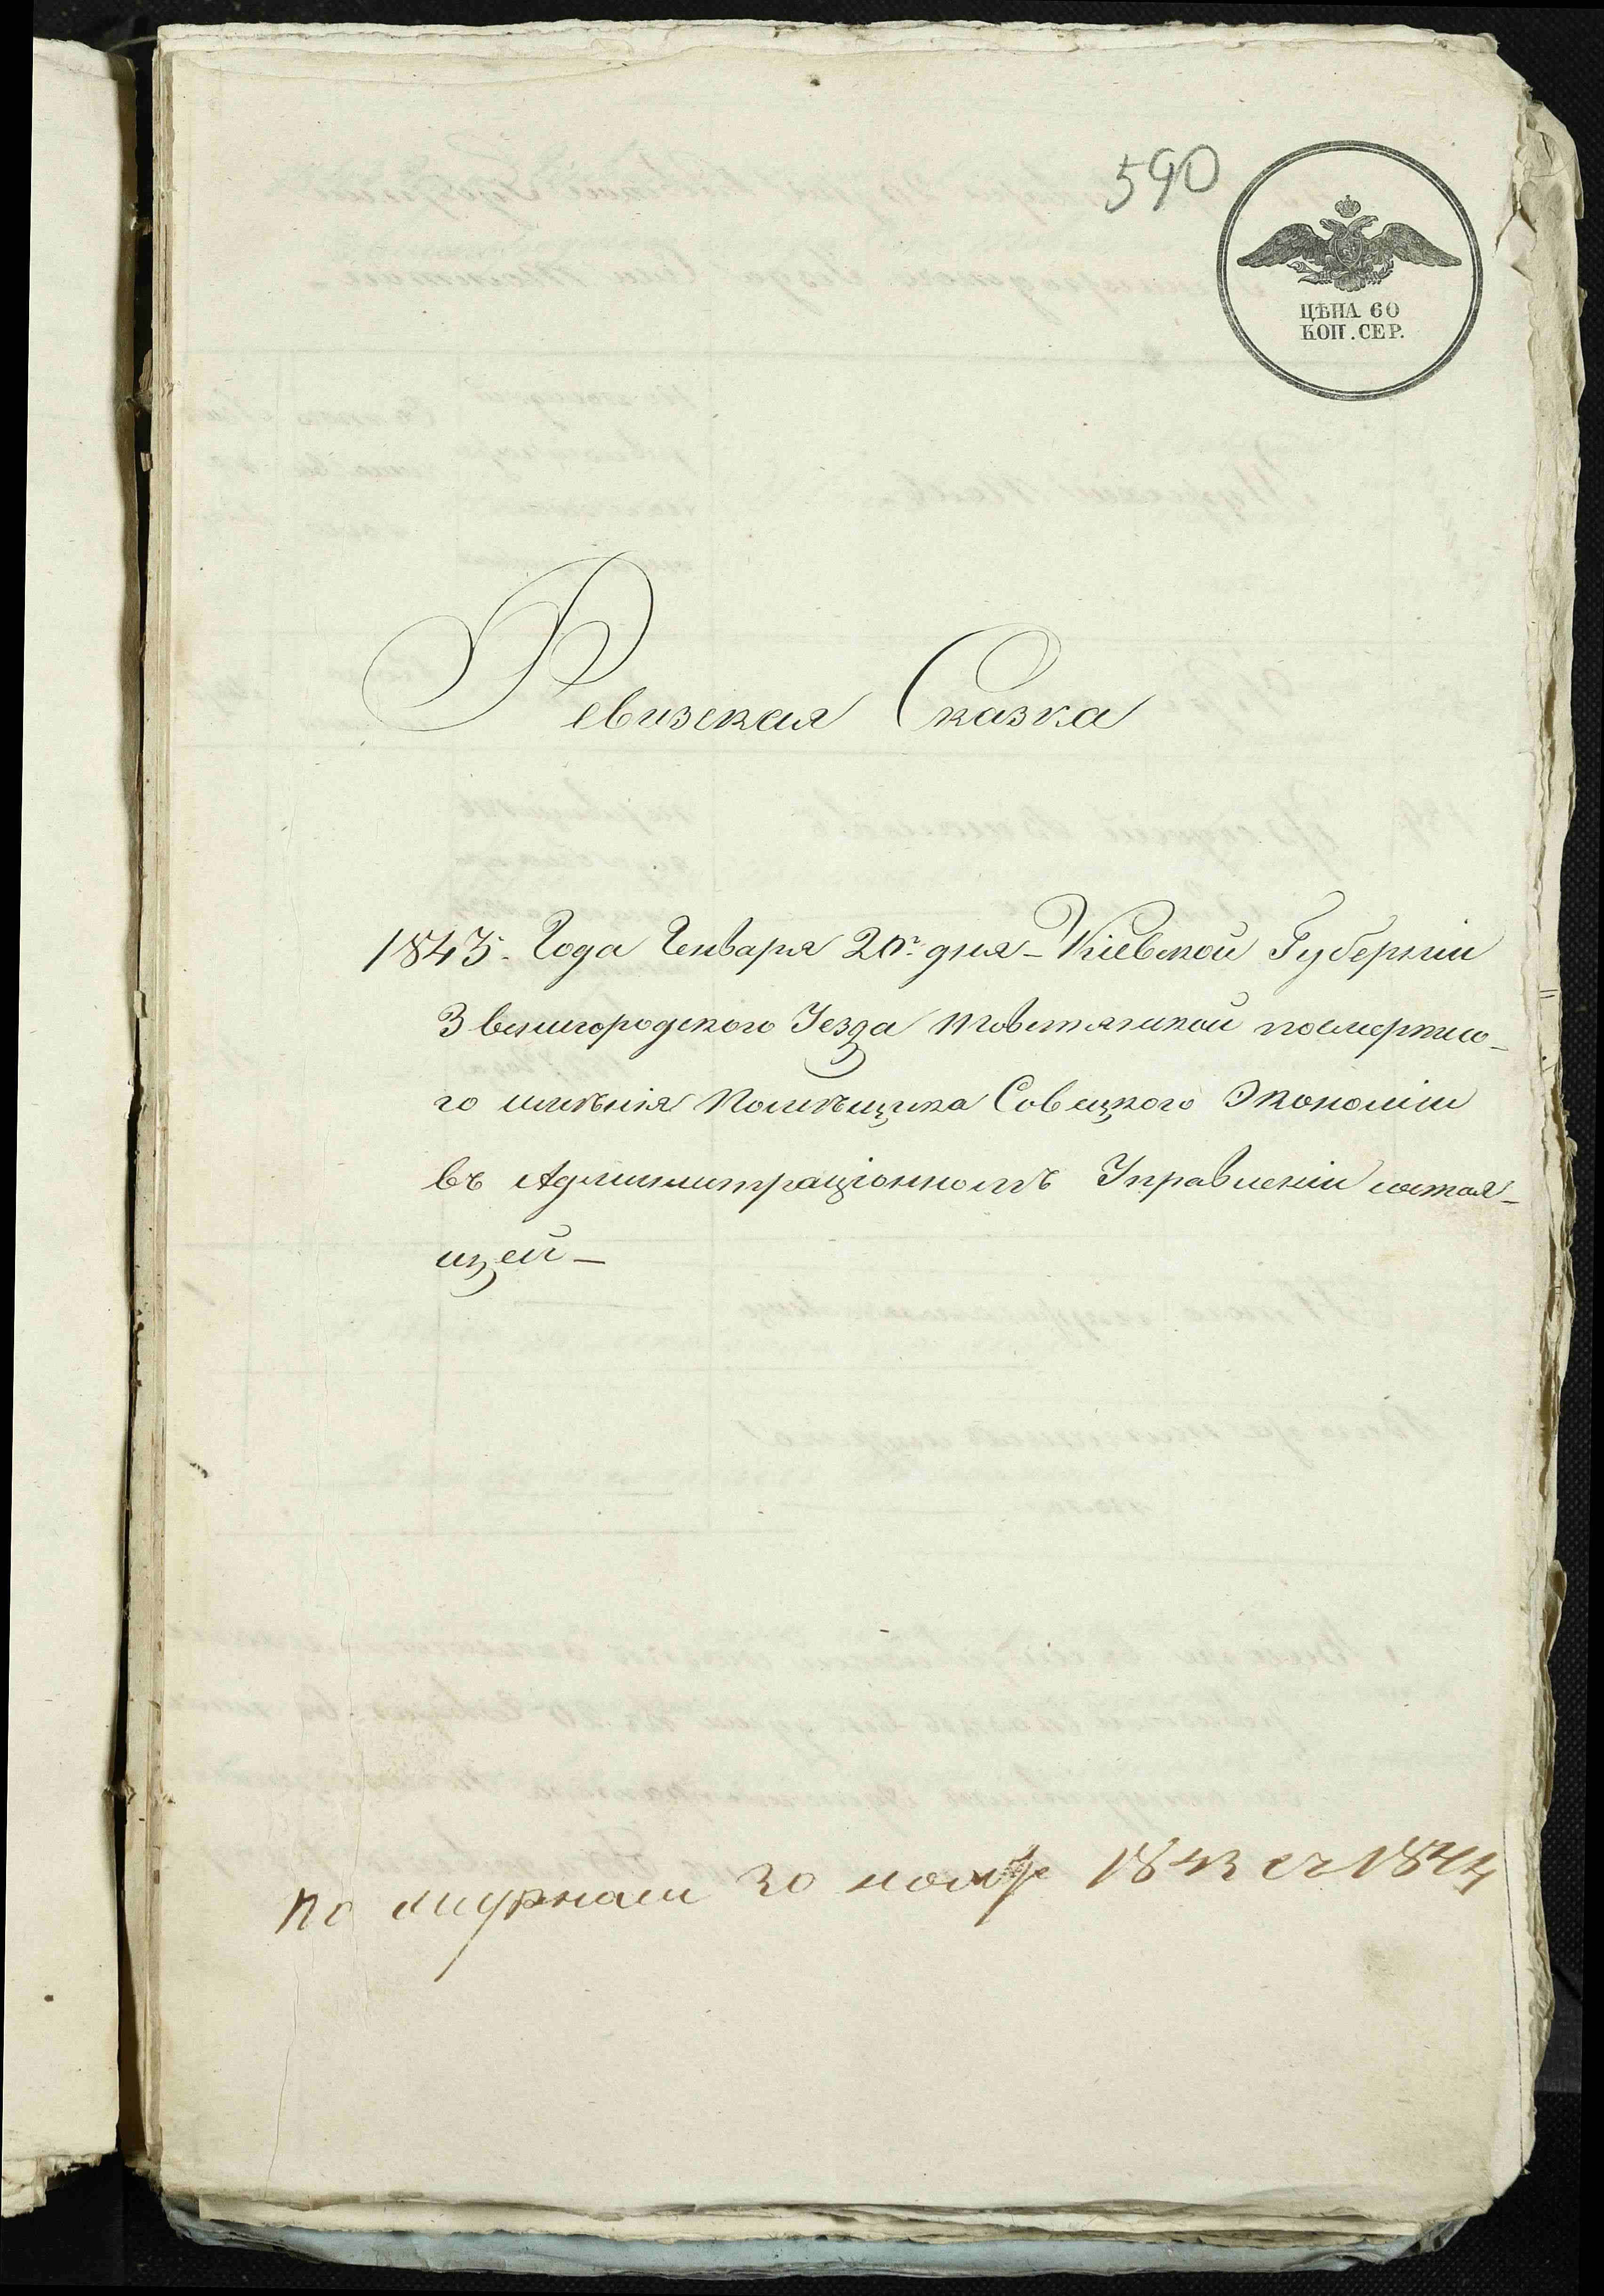 590
ЦѢНА 60
КОП. СЕР.
Ревизская Сказка
1843. Года Генваря 20го дня – Кіевской Губерніи
Звенигородского Уезда посмертно-
го имѣнія Помѣщика Совецкого Экономіи
въ Администраціонномъ Управленіи состоя-
щей –
по журнал 30 1843 1844